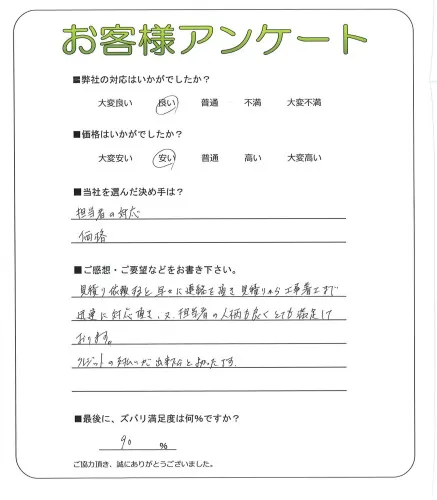 お客様アンケート
■弊社の対応はいかがでしたか?
大変良い 良い 普通 不満 大変不満
■価格はいかがでしたか?
大変安い 安い 普通 高い 大変高い
■当社を選んだ決め手は?
担当者の対応
価格
■ご感想・ご要望などをお書き下さい。
見積り依頼すると早々に連絡を頂き見積りから工事着工まで
迅速に対応頂き、又、担当者の人柄も良くとても満足して
おります。
クレジットの支払いが出来ると良かったです。
■最後に、ズバリ満足度は何%ですか?
90 %
ご協力頂き、誠にありがとうございました。